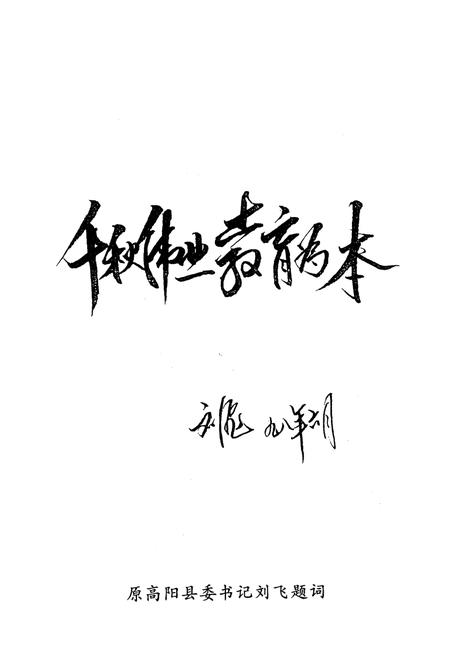 千秋伟业教育为本
刘飞 九八年六月
原高阳县委书记刘飞题词